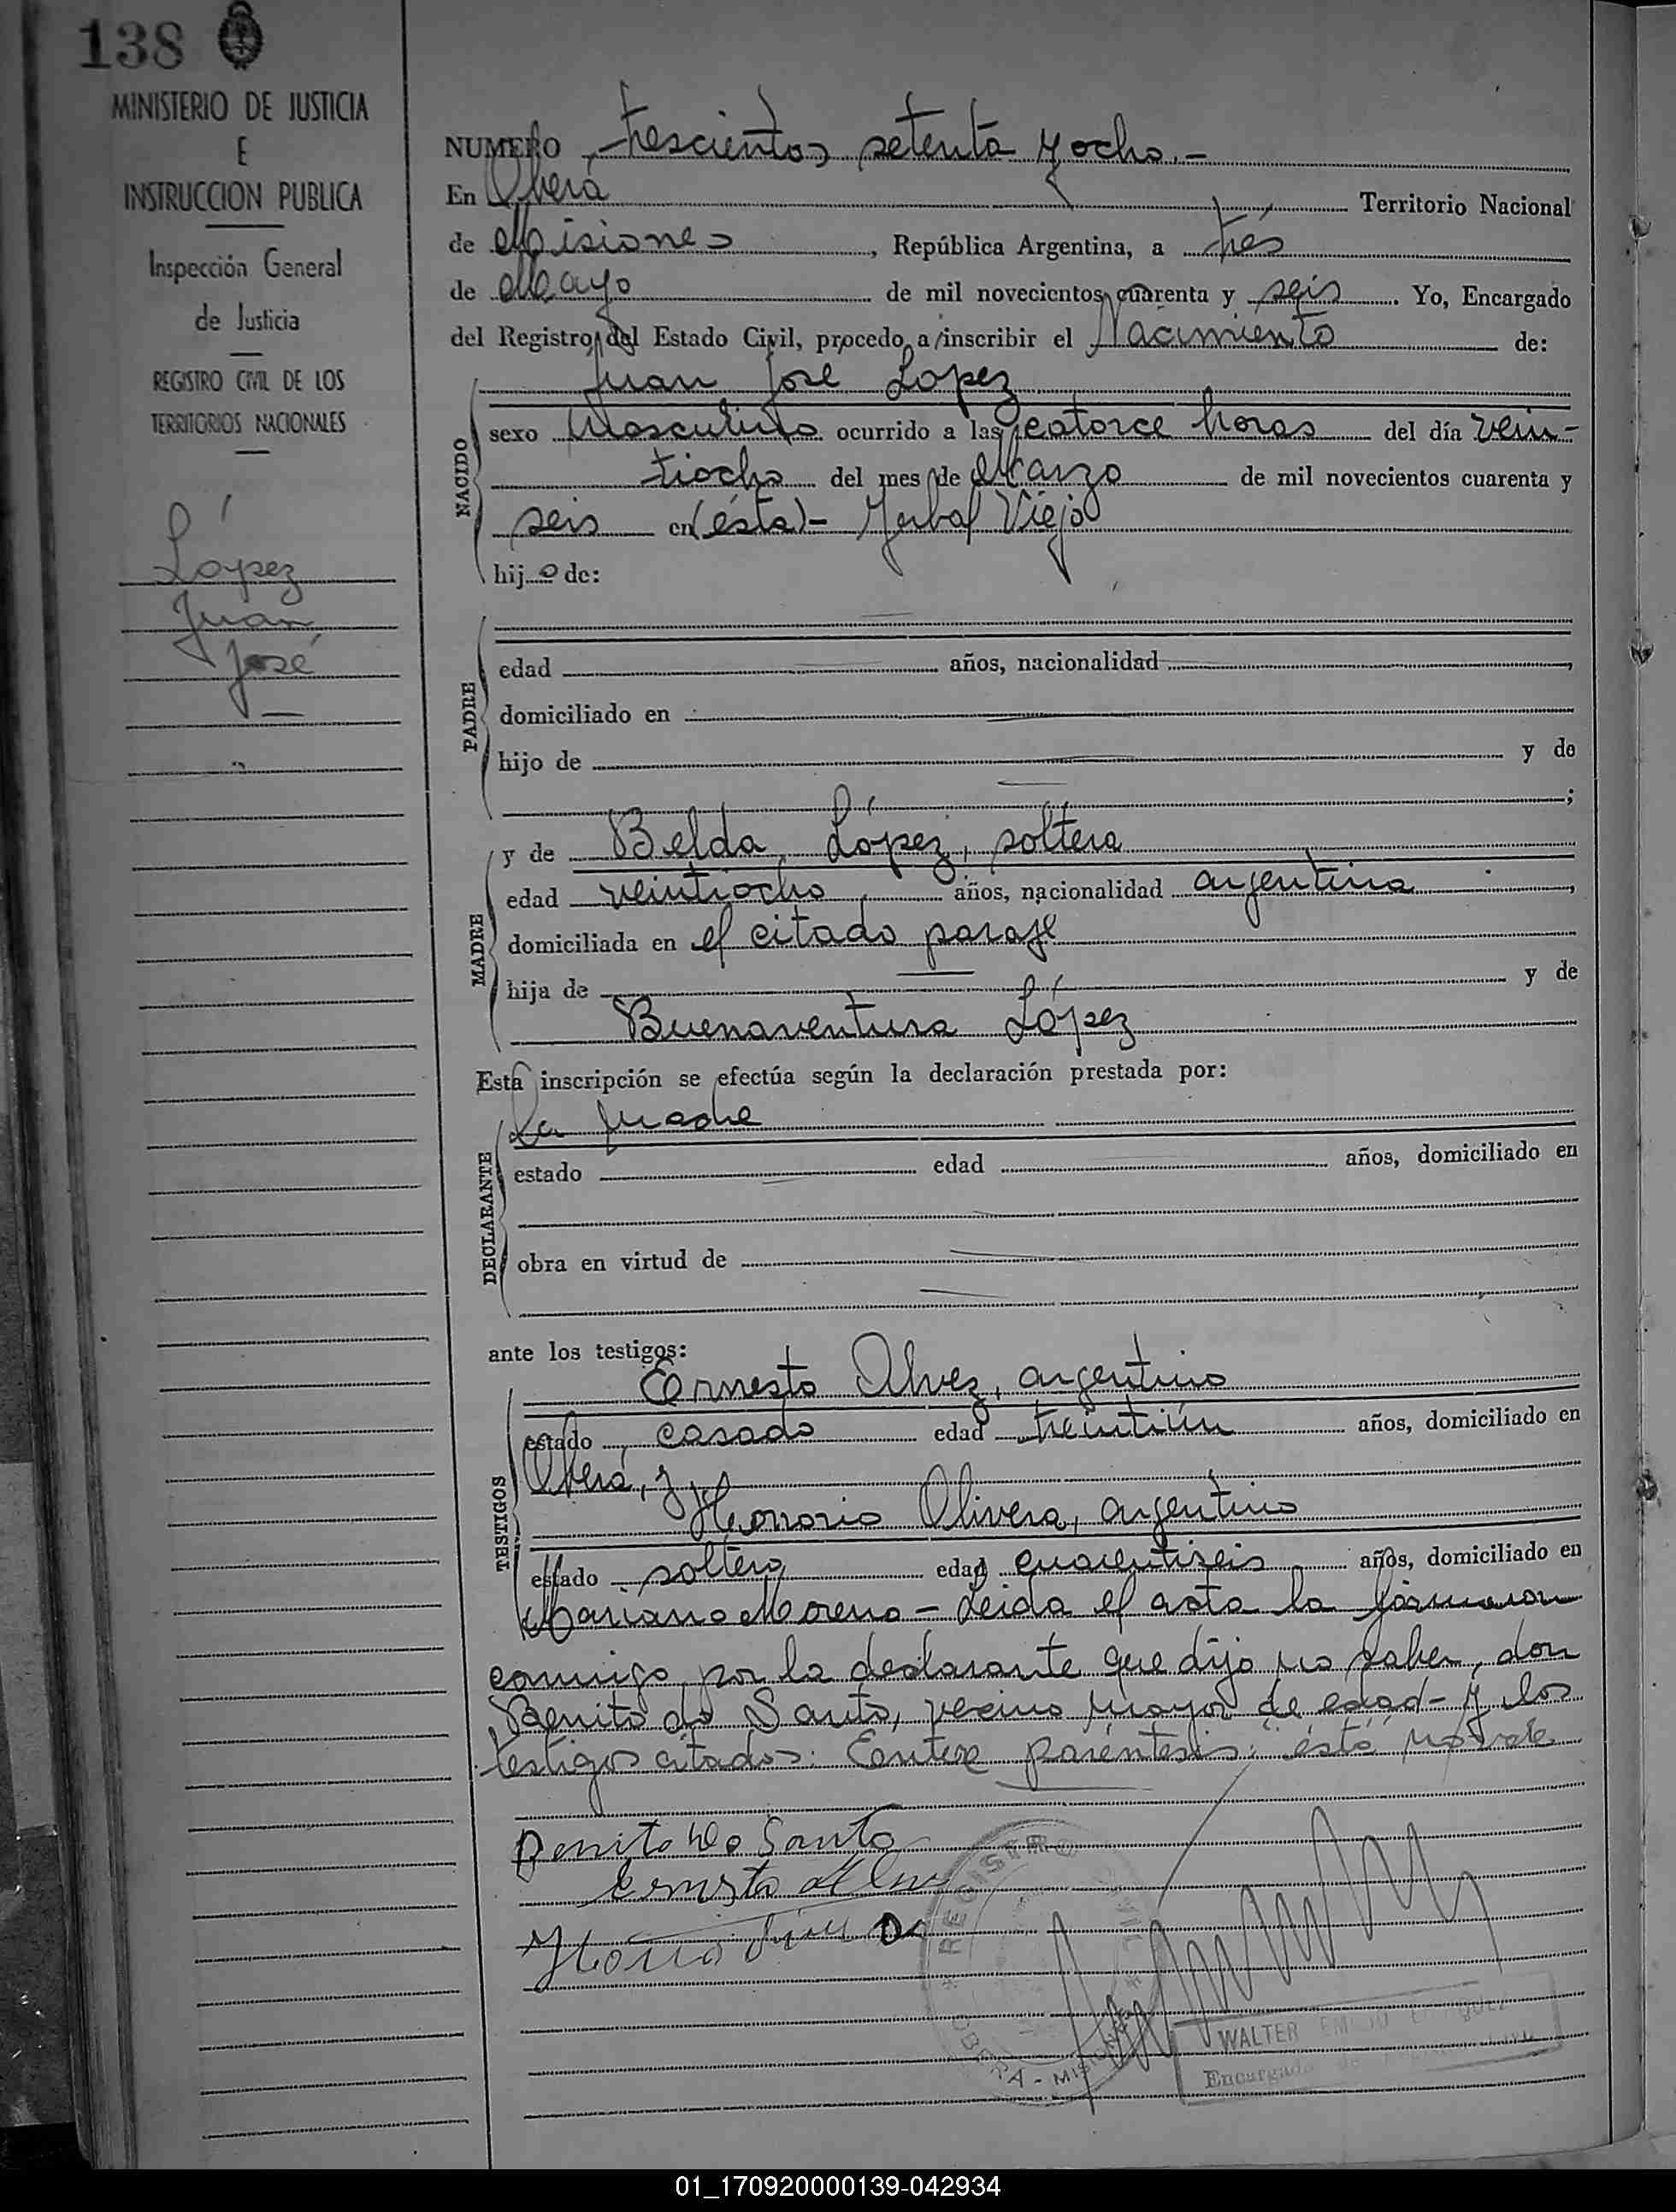 138
MINISTERIO DE JUSTICIA
E
INSTRUCCION PUBLICA
Inspección General
de Justicia
REGISTRO CIVIL DE LOS
TERRITORIOS NACIONALES
López
Juan
José
NUMERO trescientos setenta y ocho.-
En Oberá Territorio Nacional
de Misiones, República Argentina, a tres
de Mayo de mil novecientos cuarenta y seis. Yo, Encargado
del Registro del Estado Civil, procedo a inscribir el Nacimiento de:
Juan José Lopez
NACIDO
sexo Masculino ocurrido a las catorce horas del día vein-
tiocho del mes de Marzo de mil novecientos cuarenta y
seis en (ésta)- Yerbal Viejo
hijo de:
PADRE
edad años, nacionalidad
domiciliado en
hijo de y de
;
MADRE
y de Belda López, soltera
edad veintiocho años, nacionalidad argentina,
domiciliada en el citado paraje
hija de y de
Buenaventura López
Esta inscripción se efectúa según la declaración prestada por:
DECLARANTE
La madre
estado edad años, domiciliado en
obra en virtud de
ante los testigos:
TESTIGOS
Ernesto Alvez, argentino
estado casado edad treintiún años, domiciliado en
Oberá, y
Honorio Olivera, argentino
estado soltero edad cuarentiseis años, domiciliado en
Mariano Moreno - Leida el acta la firmaron
conmigo, por la declarante que dijo no saber, don
Benito do Santo, vecino mayor de edad - y los
testigos citados: Entre paréntesis: ésta no vale
Benito do Santo
Ernesto
REGISTRO CIVIL
OBERA - MISIONES
WALTER
Encargado
01_170920000139-042934